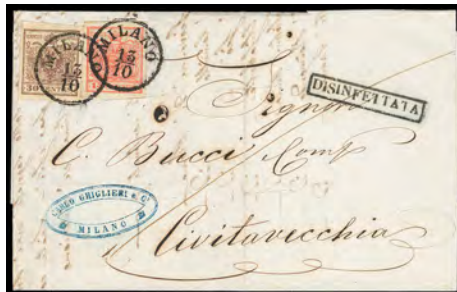 MILANO
13
10
MILANO
13
10
DISINFETTATA
C. Bucci Comp
CARLO GRIGLIERI & C°
MILANO
Civitavecchia